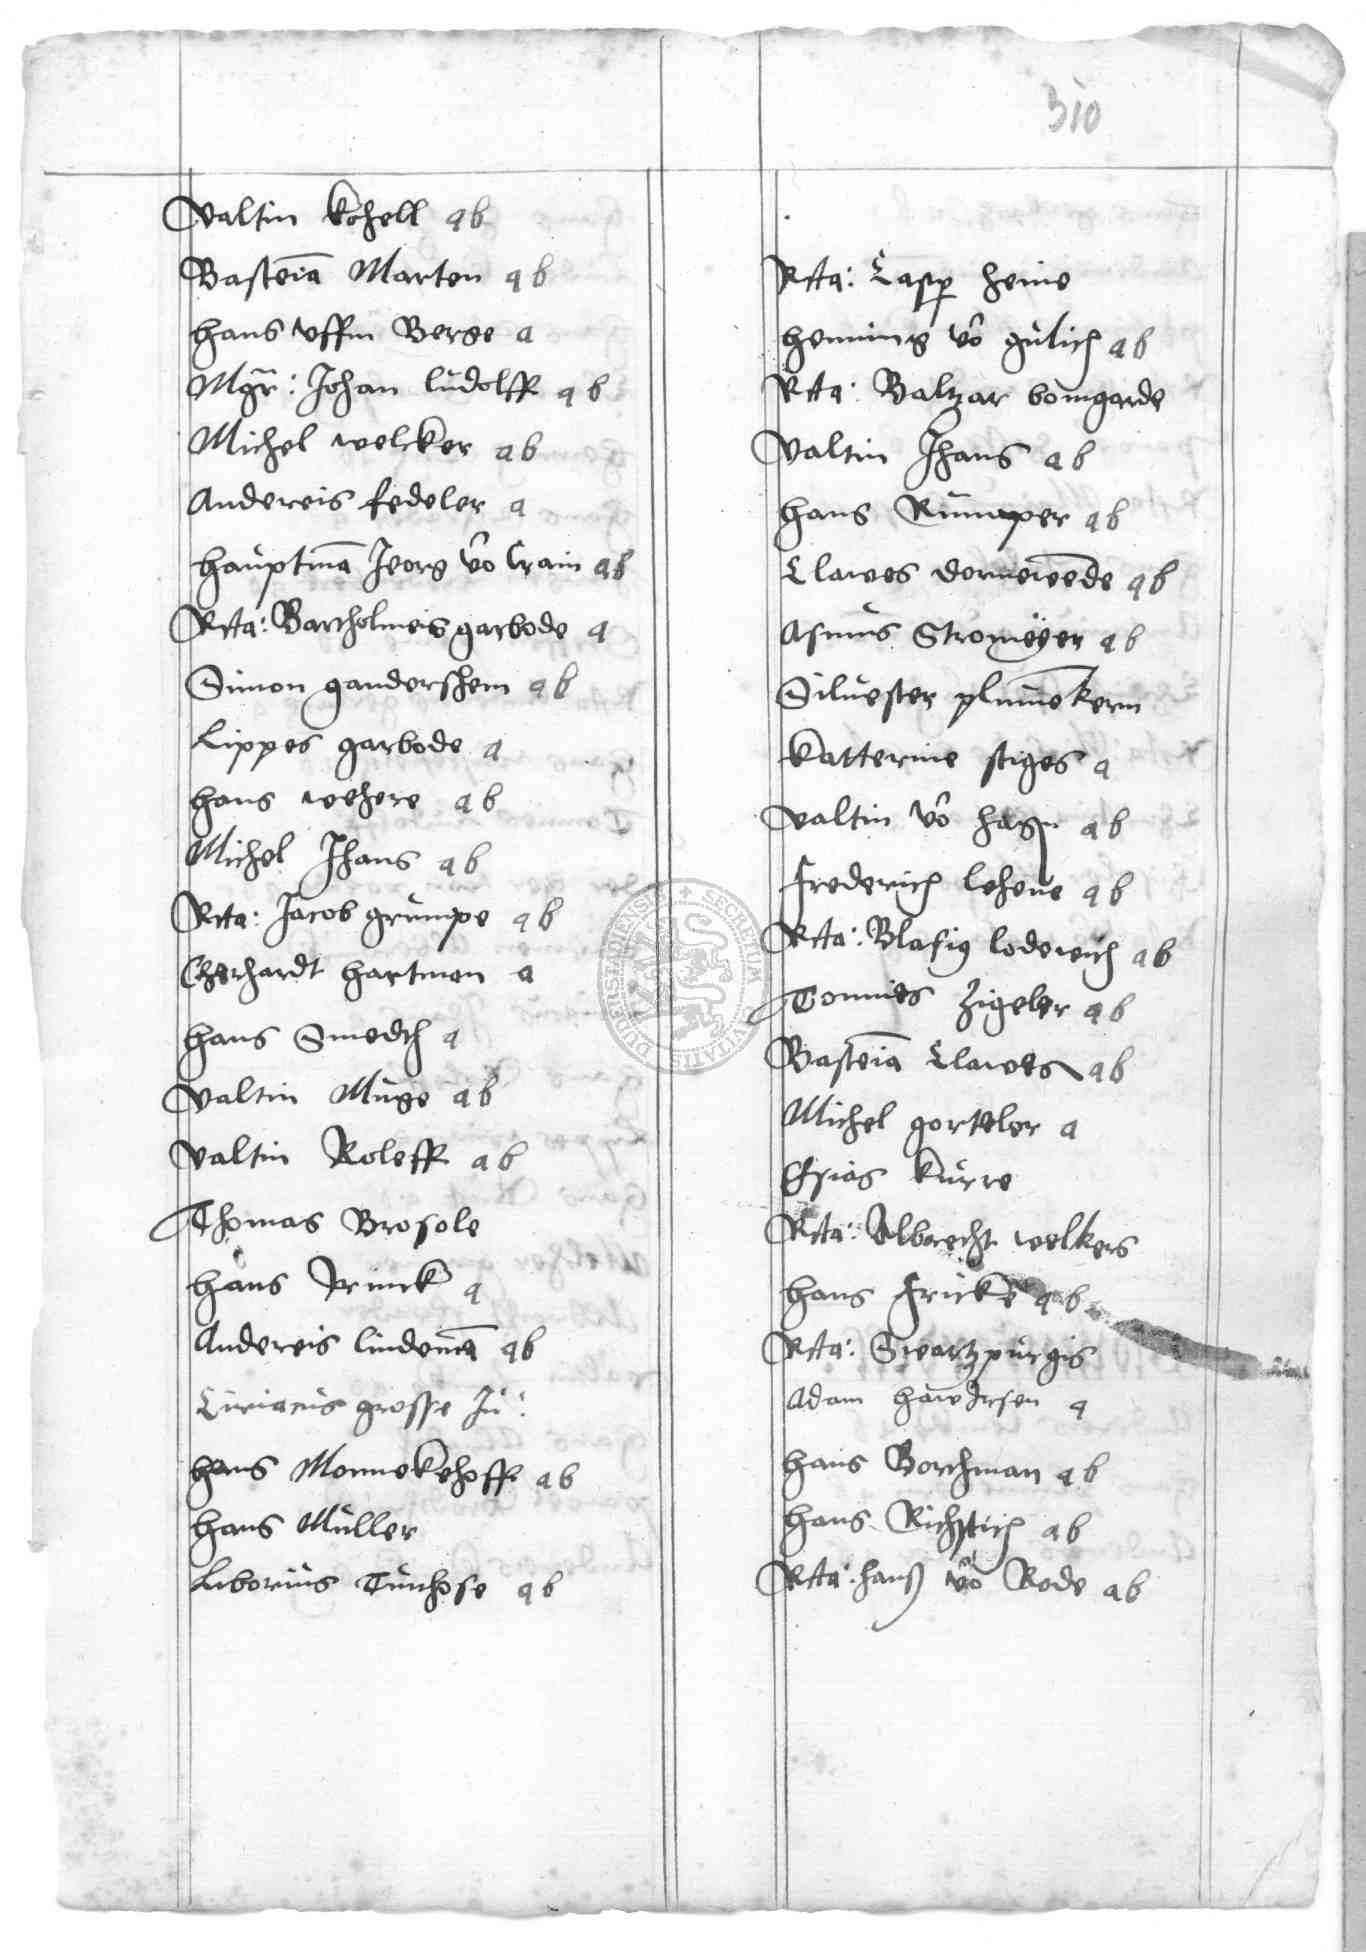 310
Valtin Kohell ab
Basteiā Marten ab
hans uffm Berge a
Mgr: Johan ludolff ab
Michel welcker ab
Andereis fedeler a
hauptmā Jeorg vō Crain ab
Rtta: Bartholmeis garbode a
Simon gandershem ab
Lippes garbode a
hans wehere ab
Michel Jhans ab
Rtta: Jacob grumpe ab
Eberhardt hartman a
hans Smedth a
Valtin Muge ab
Valtin Roleff ab
Thomas Brosole
hans Princk a
Andereis lindemā ab
Ciriacus grosse Ju:
hans Monnekehoff ab
hans Müller
Liborius Tuchose ab
Rtta: Casp heine
henning vō gulich ab
Rtta: Baltzar bomgarde
Valtin Jhans ab
hans Rumper ab
Clawes dornewende ab
Asmus Stromeÿer ab
Siluester plumēkern
Katterine stiges a
Valtin vō hagn ab
Frederich lehene ab
Rtta: Blasiq loderich ab
Tonnies Zigeler ab
Basteiā Clawes ab
Michel gorteler a
Esias Kurre
Rtta: Albrecht welkers
hans Fricke ab
Rtta: Swartzpurgis
Adam hawersen a
hans Borchman ab
hans Richstich ab
Rtta: hanß vō Rode ab
SECRETUM CIVITATIS DUDERSTADIENSIS